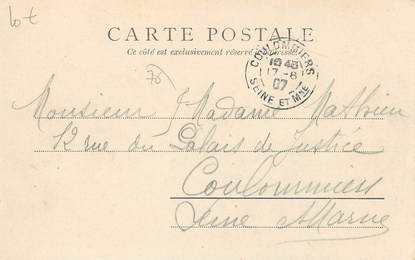 lot
CARTE POSTALE
Ce côté est exclusivement réservé à l'adresse
COULOMMIERS
10 45
17-8
07
SEINE ET MNE
Monsieur Madame Mathieu
12 rue du Palais de Justice
Coulommiers
Seine & Marne